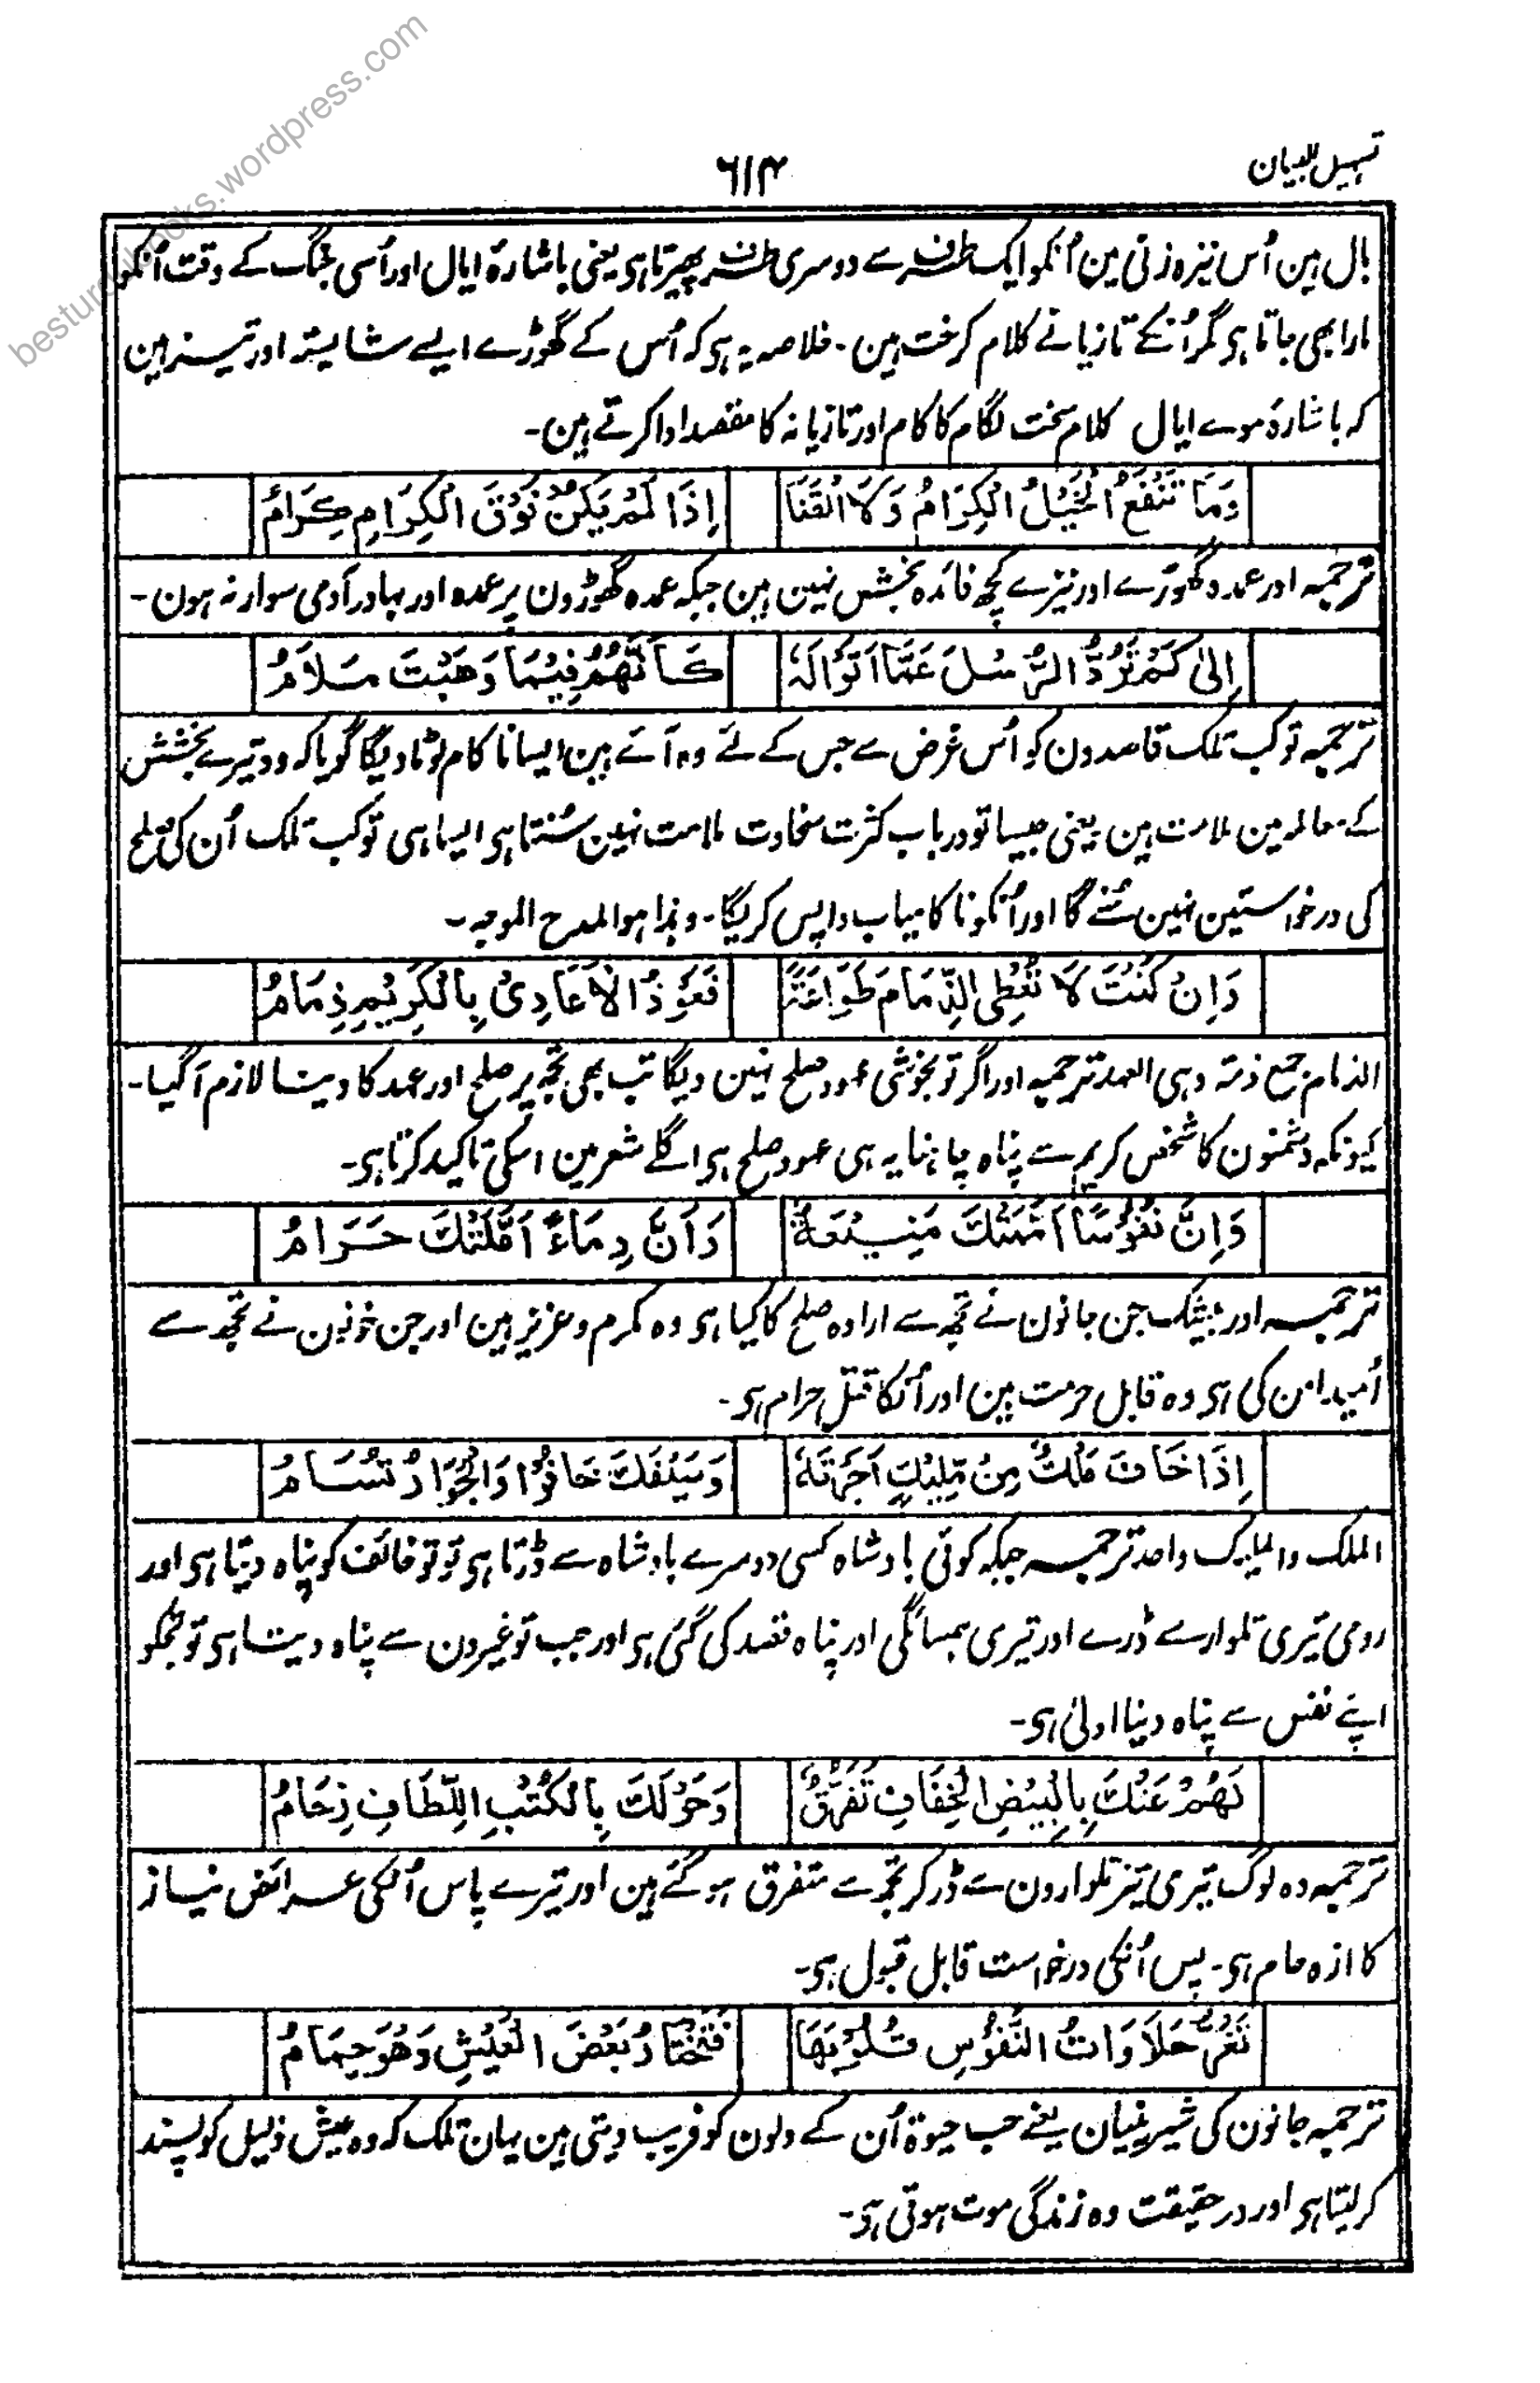 besturdubooks.wordpress.com
تسہیل البیان
٦١٣
بال ہین اُس نیزہ زنی مین اُنکو ایک طرف سے دوسری طرف پھیرتا ہی یعنی باشارۂ ایال اور اُسی جنگ کے وقت اُنکو
مارا بھی جاتا ہی مگر اُنکے تازیانے کلام کرخت ہین۔ خلاصہ یہ ہی کہ اُس کے گھوڑے ایسے شایستہ اور تیز ہین
کہ باشارۂ موے ایال کلام سخت لگام کا کام اور تازیانہ کا مقصد ادا کرتے ہین۔
وَمَا تَنْفَعُ الْخَيْلُ الْكِرَامُ وَلَا الْقَنَا اِذَا لَمْ يَكُنْ فَوْقَ الْكِرَامِ كِرَامُ
ترجمہ اور عمدہ گھوڑے اور نیزے کچھ فائدہ بخشش نہین ہین جبکہ عمدہ گھوڑون پر عمدہ اور بہادر آدمی سوار نہ ہون۔
اِلٰى كَمْ تَرُدُّ الرُّسْلَ عَمَّا اَتَوْا لَهٗ كَاَنَّهُمْ فِيْمَا وَهَبْتَ مَلَامُ
ترجمہ تو کب تلک قاصدون کو اُس غرض سے جس کے لئے وہ آئے ہین ایسا ناکام لوٹا دیگا گویا کہ وہ تیرے بخشش
کے معاملہ مین ملامت ہین یعنی جیسا تو درباب کثرت سخاوت ملامت نہین سُنتا ہی ایسا ہی تو کب تلک اُن کی صلح
کی درخواستین نہین سُنے گا اور اُنکو ناکامیاب واپس کریگا۔ وہذا ہو المدح الموجہ۔
وَاِنْ كُنْتَ لَا تُعْطِى الذِّمَامَ طَوَاعَةً فَعَوْذُ الْاَعَادِىْ بِالْكَرِيْمِ ذِمَامُ
الذمام جمع ذمتہ وہی العہد ترجمہ اور اگر تو بخوشی عہد صلح نہین دیگا تب بھی تجھ پر صلح اور عہد کا دینا لازم آگیا۔
کیونکہ دشمنون کا شخص کریم سے پناہ چاہنا یہ ہی عہد صلح ہی اگلے شعر مین اسکی تاکید کرتا ہی۔
وَاِنَّ نُفُوْسًا اَمَّمَتْكَ مَنِيْعَةٌ وَاَنَّ دِمَاءً اَمَّلَتْكَ حَرَامُ
ترجمہ اور بیشک جن جانون نے تجھ سے ارادہ صلح کا کیا ہی وہ مکرم و عزیز ہین اور جن خونون نے تجھ سے
اُمید امن کی ہی وہ قابل حرمت ہین اور اُنکا قتل حرام ہی۔
اِذَا خَافَ مَلْكٌ مِنْ مَلِيْكٍ اَجَرْتَهٗ وَسَيْفَكَ خَافُوْا وَالْجِوَارُ تُسَامُ
الملک والملیک واحد ترجمہ جبکہ کوئی بادشاہ کسی دوسرے بادشاہ سے ڈرتا ہی تو تو خائف کو پناہ دیتا ہی اور
رومی تیری تلوار سے ڈرے اور تیری ہمسائگی اور پناہ قصد کی گئی ہی اور جب تو غیرون سے پناہ دیتا ہی تو تجھکو
اپنے نفس سے پناہ دینا اولیٰ ہی۔
لَهُمْ عَنْكَ بِالْبِيْضِ الْخِفَافِ تَفَرُّقٌ وَحَوْلَكَ بِالْكُتْبِ اللِّطَافِ زِحَامُ
ترجمہ وہ لوگ تیری تیز تلوارون سے ڈر کر تجھ سے متفرق ہو گئے ہین اور تیرے پاس اُنکی عرائض نیاز
کا ازدحام ہی۔ پس اُنکی درخواست قابل قبول ہی۔
تَغُرُّ حَلَاوَاتُ النُّفُوْسِ قُلُوْبَهَا فَتَخْتَارُ بَعْضَ الْعَيْشِ وَهُوَ حِمَامُ
ترجمہ جانون کی شیرینیان یعنے حب حیوۃ اُن کے دلون کو فریب دیتی ہین یہان تلک کہ وہ عیش ذلیل کو پسند
کر لیتا ہی اور درحقیقت وہ زندگی موت ہوتی ہی۔